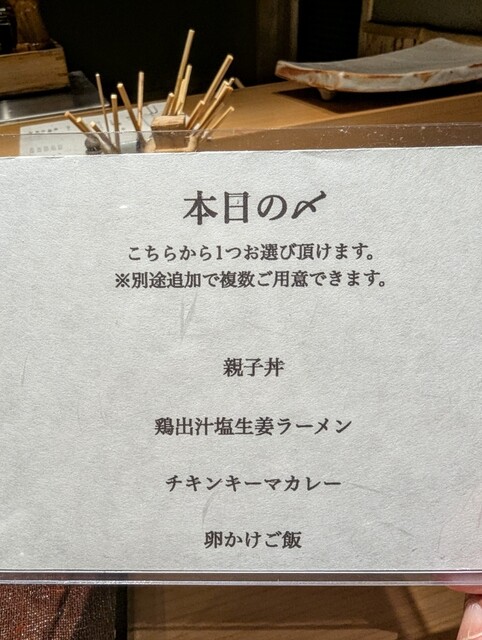 本日の〆
こちらから1つお選び頂けます。
※別途追加で複数ご用意できます。
親子丼
鶏出汁塩生姜ラーメン
チキンキーマカレー
卵かけご飯